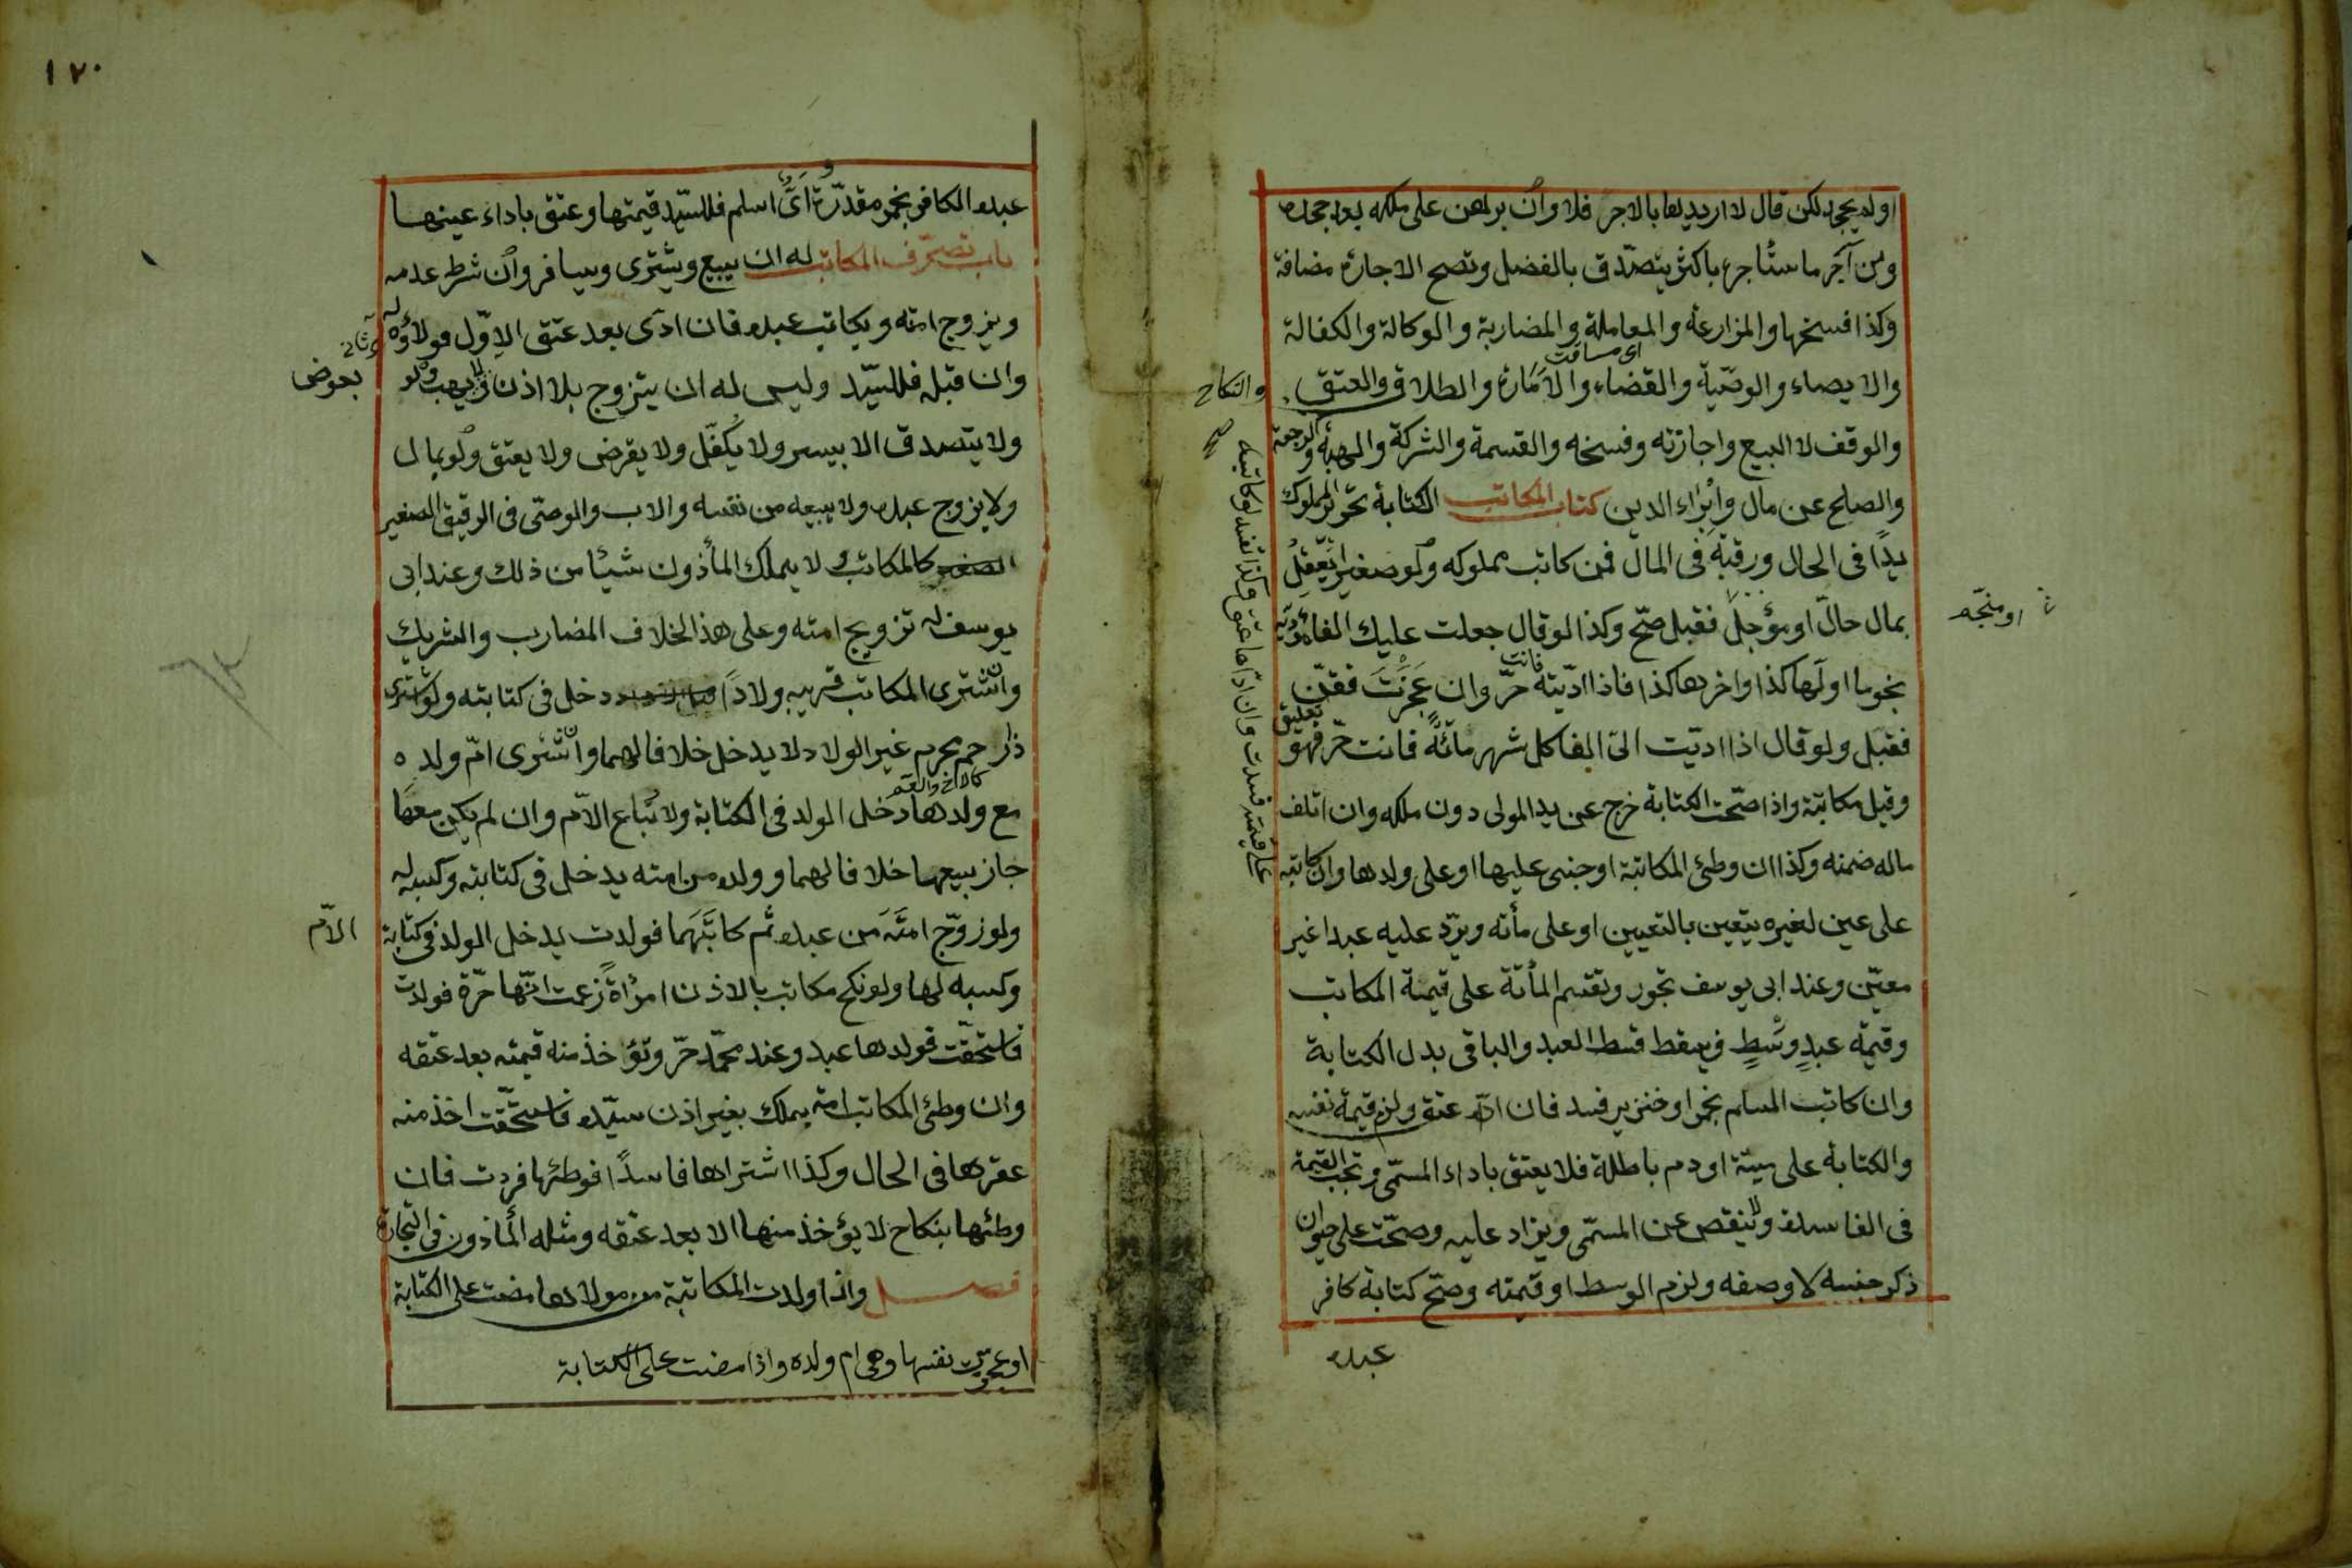 او لم يجحد لكن قال لا اريدها بالاجر فلا وان برهن على ملكه بعد جحده
ومن آجر ما ستأجره باكثر يتصدّق بالفضل وتصح الاجارة مضافة
وكذا فسخها والمزارعة والمعاملة والمضاربة والوكالة والكفالة
اى مساقت
والايصاء والوصيّة والقضاء والامارة والطلاق والعتق
والنكاح
والوقف لا البيع واجازته وفسخه والقسمة والشركة والهبة والرجعة
والصلح عن مال وابراء الدين كتاب المكاتب الكتابة تحرير المملوك
يدًا فى الحال ورقبة فى المال فمن كاتب مملوكه ولو صغيرا يعقل
بمال حالّ او مؤجل فقبل صحّ وكذا لو قال جعلت عليك الفا تؤديه
او منجّم
نجوما اولها كذا واخرها كذا فاذا ادّيته فانت حرّ وان عجزت فقنّ
فقبل ولو قال اذا ادّيت الىّ الفا كل شهر مائة فانت حرّ فهو تعليق
وقيل مكاتبة واذا صحّت الكتابة خرج عن يد المولى دون ملكه وان اتلف
ماله ضمنه وكذا ان وطئ المكاتبة او جنى عليها او على ولدها وان كاتبه
على قيمته فسدت وان ادّاها عتق وكذا تفسد لو كاتبه
على عين لغيره يتعين بالتعيين او على مأته ويردّ عليه عبدا غير
معيّن وعند ابى يوسف تجوز وتقسم المأتة على قيمة المكاتب
وقيمة عبدٍ وسطٍ فيسقط قسط العبد والباقى بدل الكتابة
وان كاتب المسلم بخمر او خنزير فسد فان ادّاه عتق ولزم قيمة نفسه
والكتابة على ميتة او دم باطلة فلا يعتق باداء المسمّى وتجب القيمة
فى الفاسدة ولا ينقص عن المسمّى ويزاد عليه وصحّت على حيوان
ذكر جنسه لا وصفه ولزم الوسط او قيمته وصحّ كتابة كافر
عبده
١٧٠
عبده الكافر بخمر مقدّرة واىّ اسلم فللسيّد قيمتها وعتق باداء عينها
باب تصرّف المكاتب له ان يبيع ويشترى ويسافر وان شرط عدمه
ويزوج امته ويكاتب عبده فان ادّى بعد عتق الاوّل فولاؤه له
وان قبله فللسيّد وليس له ان يتزوج بلا اذن ولا يهب ولو
بعوض
ولا يتصدق الا بيسير ولا يكفل ولا يقرض ولا يعتق ولو بمال
ولا يزوج عبده ولا يبيعه من نفسه والاب والوصّى فى الرقيق الصغير
الصغير كالمكاتب ولا يملك المأذون شيئا من ذلك وعند ابى
يوسف له تزويج امته وعلى هذا الخلاف المضارب والشريك
وان شترى المكاتب قريبه ولادًا دخل فى كتابته ولو اشترى
ذا رحم محرم غير الولاد لا يدخل خلافا لهما وان شترى امّ ولده
كالاخ والعم
مع ولدها دخل الولد فى الكتابة ولا تباع الامّ وان لم يكن معها
جاز بيعها خلافا لهما وولده من امته يدخل فى كتابته وكسبه له
ولو زوّج امته من عبده ثم كاتبهما فولدت يدخل الولد فى كتابة
الامّ
وكسبه لها ولو نكح مكاتب بالاذن امرأة زعمت انّها حرّة فولدت
فاستحقّت فولدها عبد وعند محمّد حرّ وتؤخذ منه قيمته بعد عتقه
وان وطئ المكاتب امة بملك بغير اذن سيّده فاستحّقت اخذ منه
عقرها فى الحال وكذا اشتراها فاسدًا فوطئها فردت فان
وطئها بنكاح لا يؤخذ منها الا بعد عتقه ومثله المأذون فى التجارة
فصل واذا ولدت المكاتبة من مولاها مضت على الكتابة
او عجزت نفسها وهى ام ولده واذا مضت على الكتابة